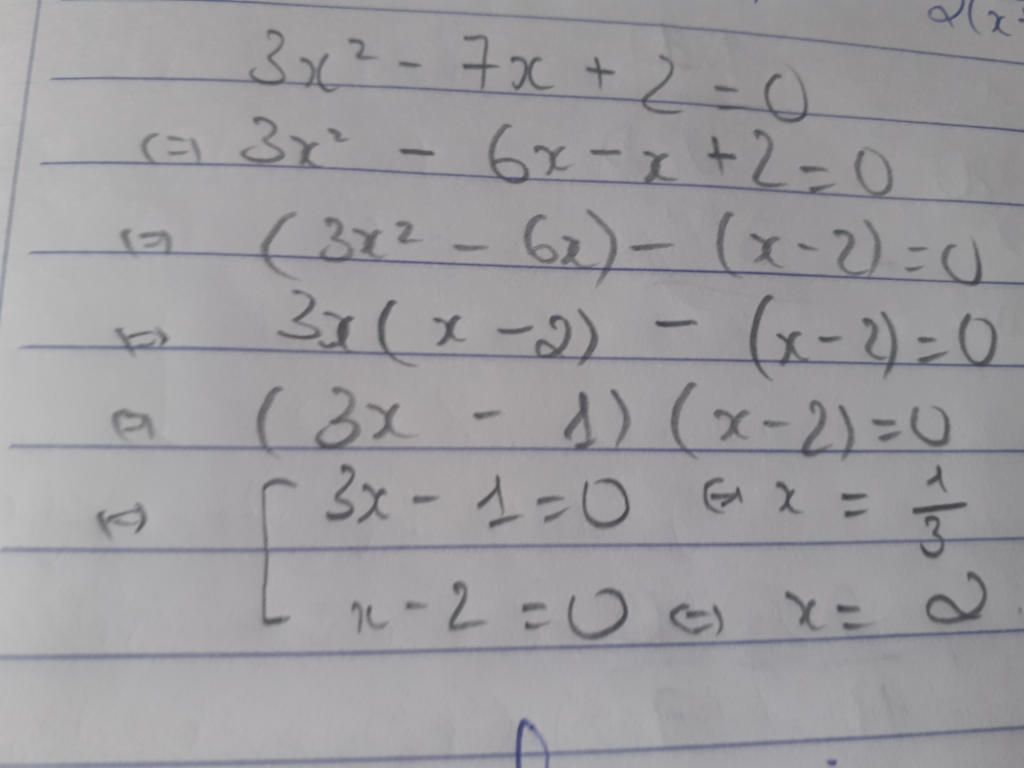 2(x
3x² - 7x + 2 = 0
⇔ 3x² - 6x - x + 2 = 0
⇔ (3x² - 6x) - (x - 2) = 0
⇔ 3x(x - 2) - (x - 2) = 0
⇔ (3x - 1)(x - 2) = 0
⇔ [ 3x - 1 = 0 ⇔ x = 1/3
x - 2 = 0 ⇔ x = 2